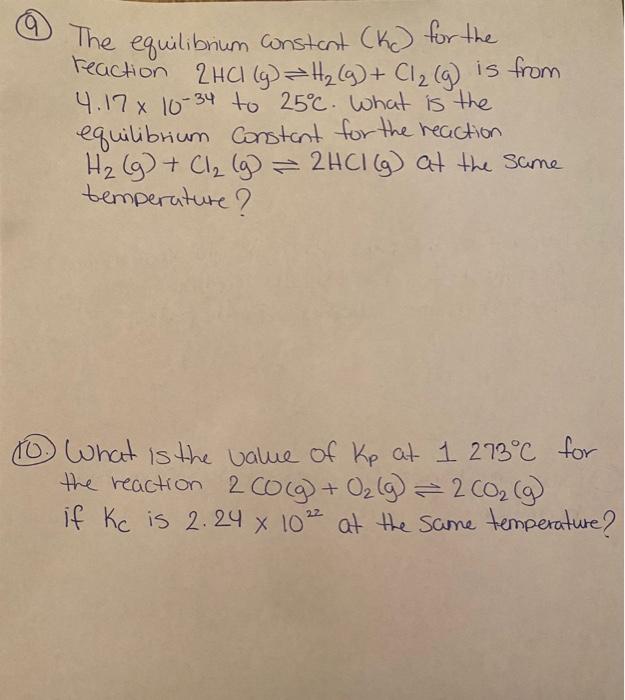 9 The equilibrium constant (Kc) for the
reaction 2HCl (g) ⇌ H₂ (g) + Cl₂ (g) is from
4.17 x 10⁻³⁴ to 25°C. What is the
equilibrium constant for the reaction
H₂ (g) + Cl₂ (g) ⇌ 2HCl (g) at the same
temperature?
10.) What is the value of Kp at 1 273°C for
the reaction 2 CO(g) + O₂ (g) ⇌ 2 CO₂ (g)
if Kc is 2.24 x 10²² at the same temperature?